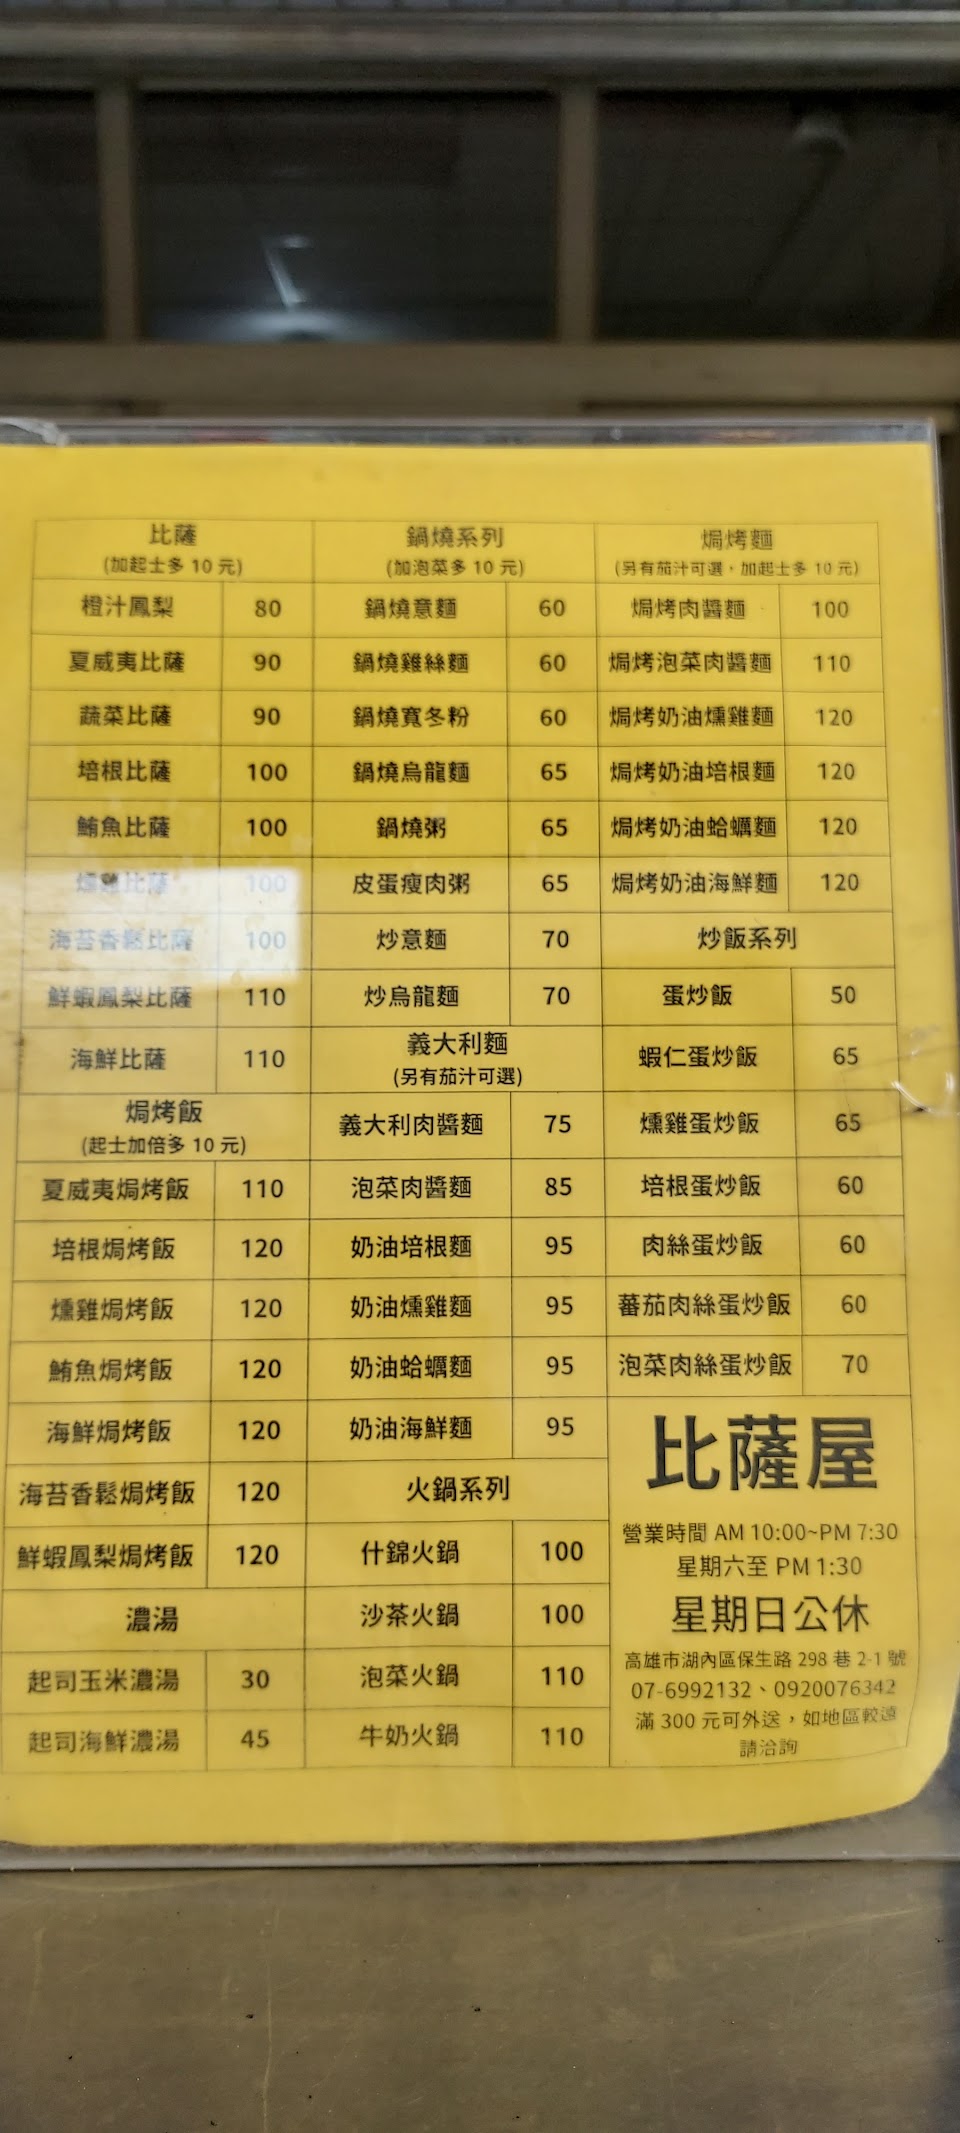 比薩
(加起士多 10 元)
橙汁鳳梨 80
夏威夷比薩 90
蔬菜比薩 90
培根比薩 100
鮪魚比薩 100
燻雞比薩 100
海苔香鬆比薩 100
鮮蝦鳳梨比薩 110
海鮮比薩 110
焗烤飯
(起士加倍多 10 元)
夏威夷焗烤飯 110
培根焗烤飯 120
燻雞焗烤飯 120
鮪魚焗烤飯 120
海鮮焗烤飯 120
海苔香鬆焗烤飯 120
鮮蝦鳳梨焗烤飯 120
濃湯
起司玉米濃湯 30
起司海鮮濃湯 45
鍋燒系列
(加泡菜多 10 元)
鍋燒意麵 60
鍋燒雞絲麵 60
鍋燒寬冬粉 60
鍋燒烏龍麵 65
鍋燒粥 65
皮蛋瘦肉粥 65
炒意麵 70
炒烏龍麵 70
義大利麵
(另有茄汁可選)
義大利肉醬麵 75
泡菜肉醬麵 85
奶油培根麵 95
奶油燻雞麵 95
奶油蛤蠣麵 95
奶油海鮮麵 95
火鍋系列
什錦火鍋 100
沙茶火鍋 100
泡菜火鍋 110
牛奶火鍋 110
焗烤麵
(另有茄汁可選，加起士多 10 元)
焗烤肉醬麵 100
焗烤泡菜肉醬麵 110
焗烤奶油燻雞麵 120
焗烤奶油培根麵 120
焗烤奶油蛤蠣麵 120
焗烤奶油海鮮麵 120
炒飯系列
蛋炒飯 50
蝦仁蛋炒飯 65
燻雞蛋炒飯 65
培根蛋炒飯 60
肉絲蛋炒飯 60
蕃茄肉絲蛋炒飯 60
泡菜肉絲蛋炒飯 70
比薩屋
營業時間 AM 10:00~PM 7:30
星期六至 PM 1:30
星期日公休
高雄市湖內區保生路 298 巷 2-1 號
07-6992132、0920076342
滿 300 元可外送，如地區較遠
請洽詢